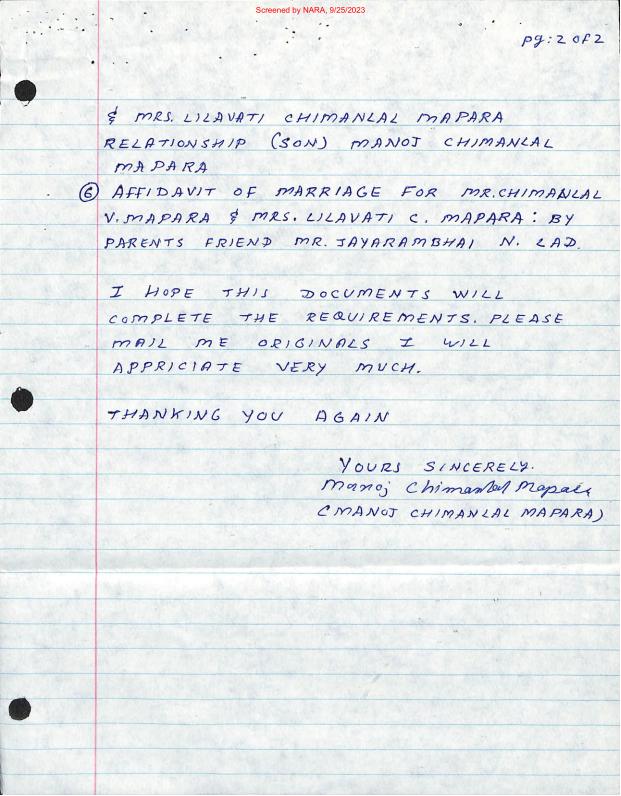 Screened by NARA, 9/25/2023
pg: 2 of 2
& MRS. LILAVATI CHIMANLAL MAPARA
RELATIONSHIP (SON) MANOJ CHIMANLAL
MAPARA
⑥ AFFIDAVIT OF MARRIAGE FOR MR. CHIMANLAL
V. MAPARA & MRS. LILAVATI C. MAPARA: BY
PARENTS FRIEND MR. JAYARAMBHAI N. LAD.
I HOPE THIS DOCUMENTS WILL
COMPLETE THE REQUIREMENTS. PLEASE
MAIL ME ORIGINALS I WILL
APPRICIATE VERY MUCH.
THANKING YOU AGAIN
YOURS SINCERELY.
Manoj Chimanlal Mapara
(MANOJ CHIMANLAL MAPARA)